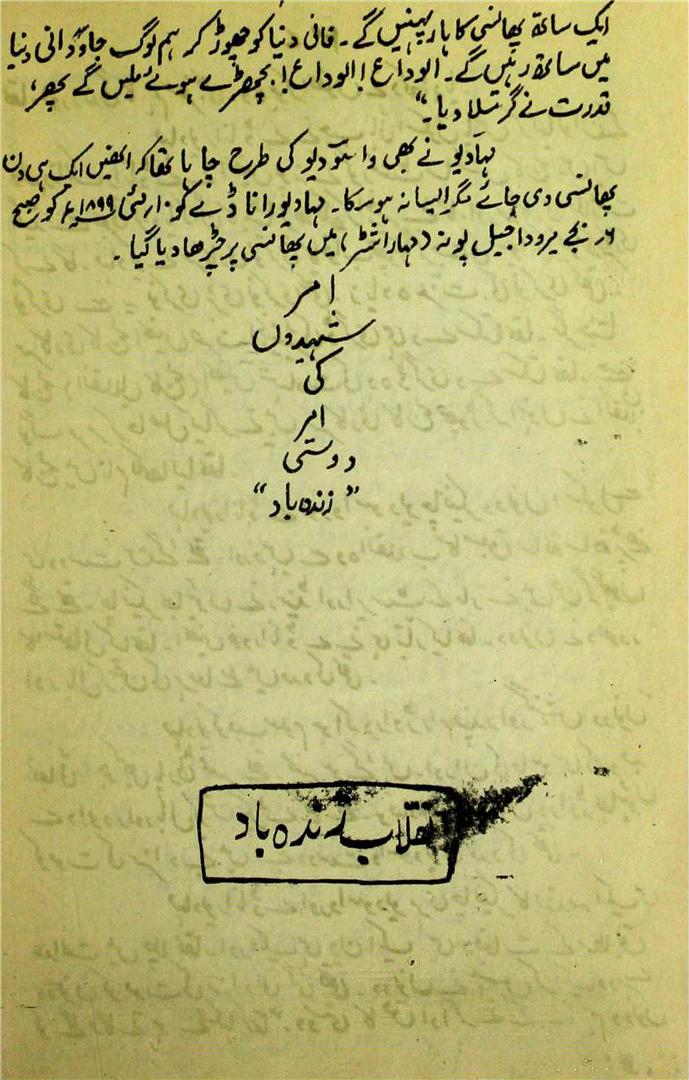 ایک ساتھ پھانسی کا ہار پہنیں گے۔ فانی دنیا کو چھوڑ کر ہم لوگ جاودانی دنیا
میں ساتھ رہیں گے۔ الوداع! الوداع! بچھڑے ہوئے ملیں گے پھر،
قدرت نے گر ملا دیا۔"
مہادیو نے بھی واسودیو کی طرح چاہا تھا کہ انھیں ایک ہی دن
پھانسی دی جائے مگر ایسا نہ ہو سکا۔ مہادیو رانا ڈے کو ۱۰ مئی ۱۸۹۹ء کو صبح
۶ بجے یرودا جیل پونہ (مہاراشٹر) میں پھانسی پر چڑھا دیا گیا۔
امر
شہیدوں
کی
امر
دوستی
"زندہ باد"
انقلاب زندہ باد